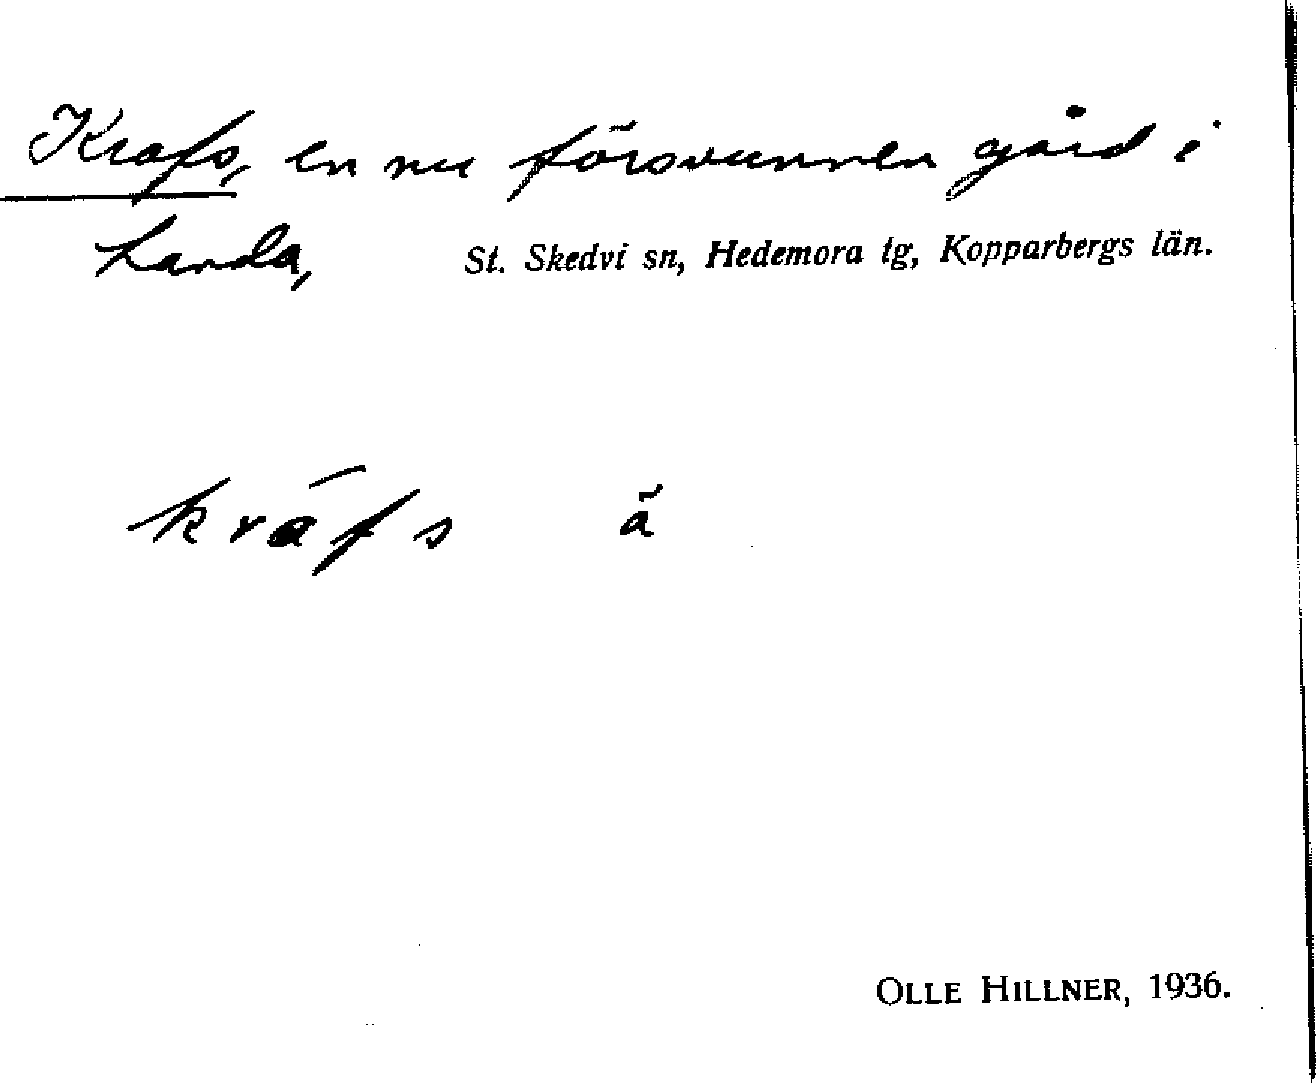 Krafs, en nu försvunnen gård i
Landa, St. Skedvi sn, Hedemora tg, Kopparbergs län.
kráfs ã
OLLE HILLNER, 1936.